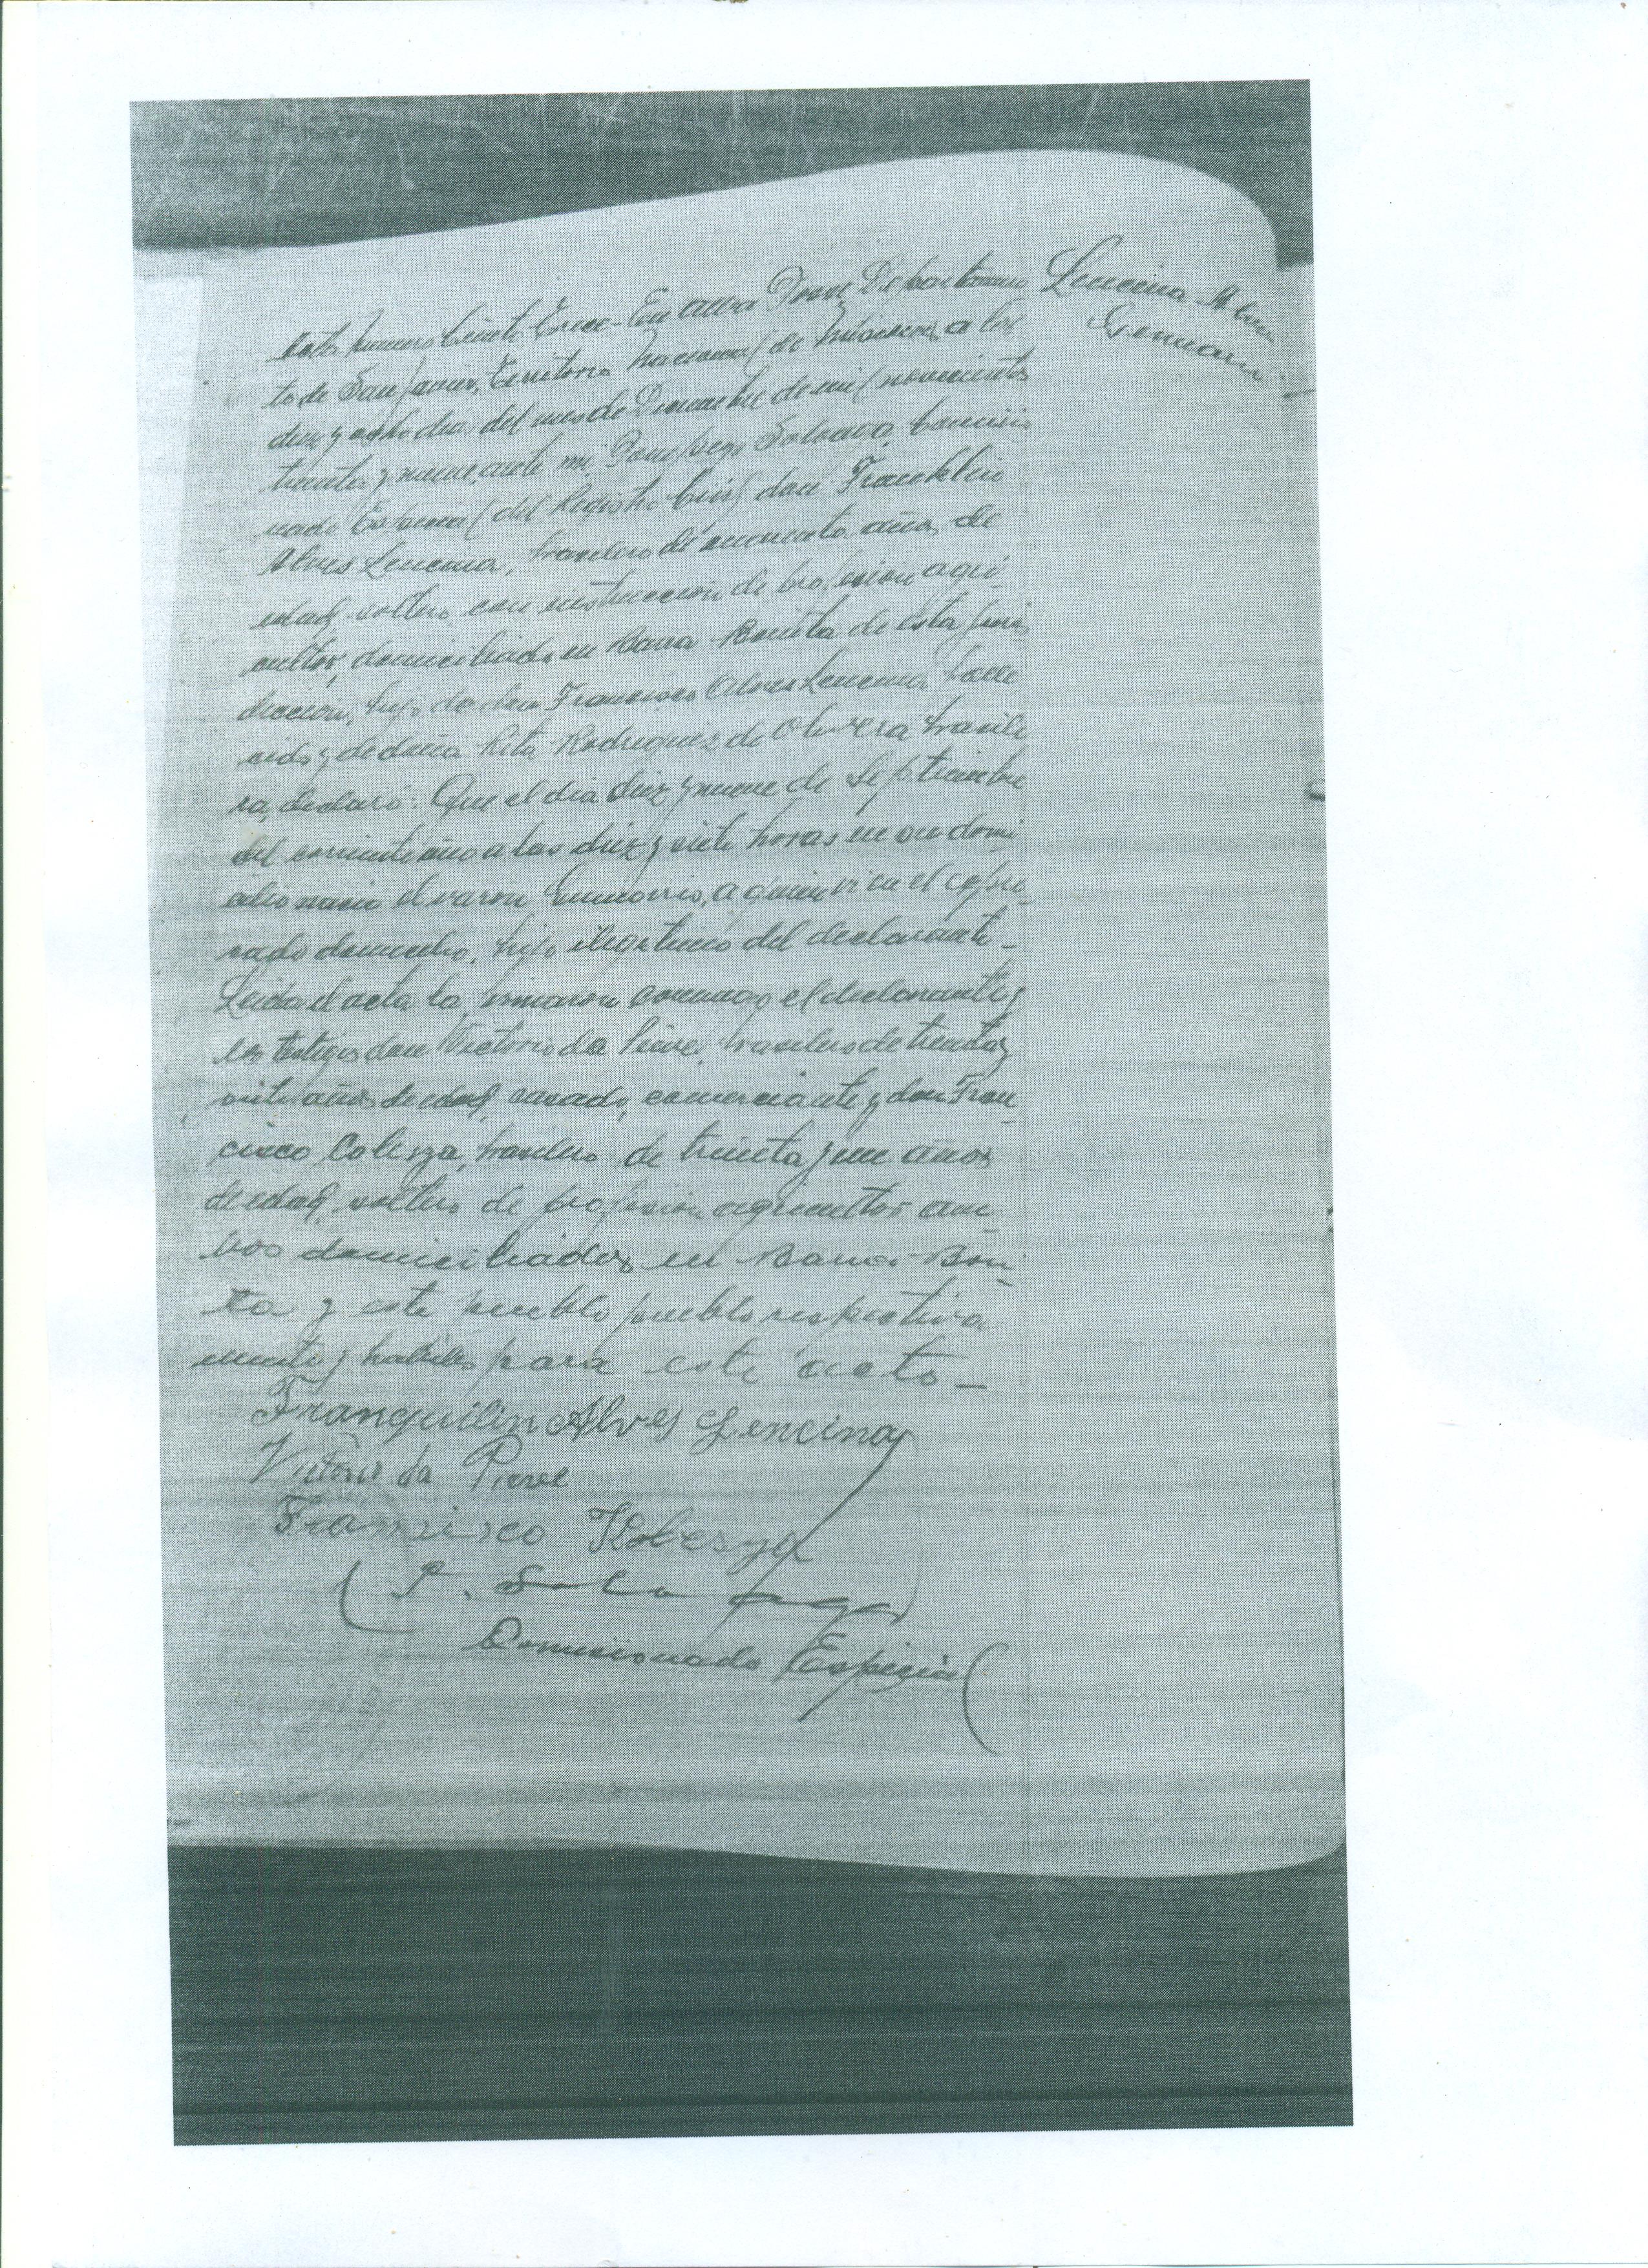 Acta número Ciento Trece - En Alba Posse Departamen
to de San Javier, Territorio Nacional de Misiones, a los
diez y ocho dias del mes de Diciembre de mil novecientos
treinta y nueve, ante mi, Solaga, Comisio
nado Especial del Registro Civil, don Francklin
Alves Lencina, brasilero de cincuenta años de
edad, soltero, con instruccion de profesion agri
cultor, domiciliado en Barra Bonita de esta juris
diccion, hijo de don Francisco Alves Lencina falle
cido y de doña Rita Rodriguez de Olivera brasile
ra, declaró: Que el dia diez y nueve de Septiembre
del corriente año a las diez y siete horas en su domi
cilio nació el varon, a quien vi en el expre
sado domicilio, hijo ilegitimo del declarante -
Leida el acta la firmaron conmigo el declarante y
los testigos don Victorio da Pieve, brasilero de treinta y
siete años de edad, casado, comerciante y don Fran
cisco Colesza, brasilero de treinta y un años
de edad, soltero de profesion agricultor am
bos domiciliados en Barra Boni
ta y este pueblo pueblo respectiva
mente y habiles para este acto -
Franquilin Alves Lencina
Victorio da Pieve
Francisco Kolesza
P. Solaga
Comisionado Especial
Lencina Alves